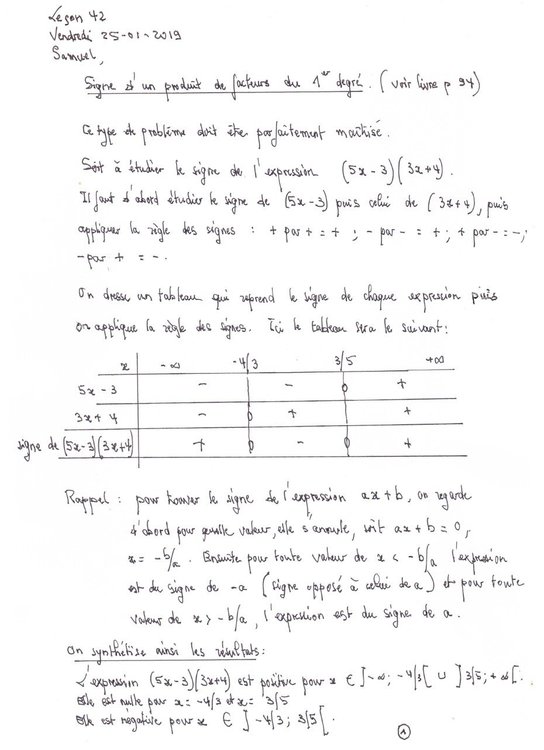 Leçon 42
Vendredi 25-01-2019
Samuel,
Signe d'un produit de facteurs du 1er degré. (voir livre p 94)
Ce type de problème doit être parfaitement maîtrisé.
Soit à étudier le signe de l'expression (5x-3)(3x+4).
Il faut d'abord étudier le signe de (5x-3) puis celui de (3x+4), puis
appliquer la règle des signes : + par + = + ; - par - = + ; + par - = - ;
- par + = - .
On dresse un tableau qui reprend le signe de chaque expression puis
on applique la règle des signes. Ici le tableau sera le suivant :
x -∞ -4/3 3/5 +∞
5x-3 - - 0 +
3x+4 - 0 + +
signe de (5x-3)(3x+4) + 0 - 0 +
Rappel : pour trouver le signe de l'expression ax+b, on regarde
d'abord pour quelle valeur, elle s'annule, soit ax+b=0,
x = -b/a. Ensuite pour toute valeur de x < -b/a l'expression
est du signe de -a (signe opposé à celui de a) et pour toute
valeur de x > -b/a, l'expression est du signe de a.
On synthétise ainsi les résultats :
L'expression (5x-3)(3x+4) est positive pour x ∈ ]-∞; -4/3[ ∪ ]3/5; +∞[.
Elle est nulle pour x = -4/3 et x = 3/5
Elle est négative pour x ∈ ]-4/3; 3/5[.
1